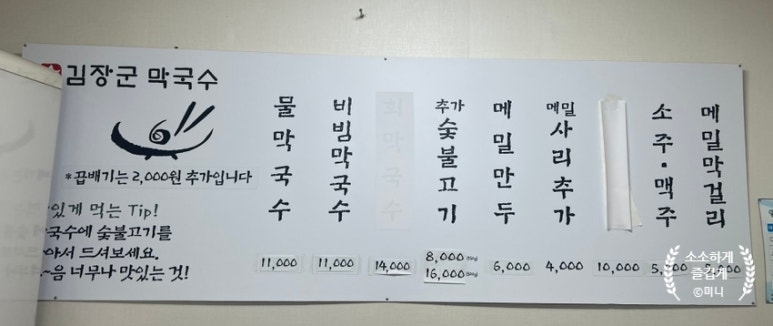 김장군 막국수
*곱배기는 2,000원 추가입니다
있게 먹는 Tip!
국수에 숯불고기를
아서 드셔보세요.
~음 너무나 맛있는 것!
물막국수
11,000
비빔막국수
11,000
회막국수
14,000
추가 숯불고기
8,000
16,000
메밀만두
6,000
메밀 사리추가
4,000
10,000
소주·맥주
메밀막걸리
소소하게
즐겁게
©미니